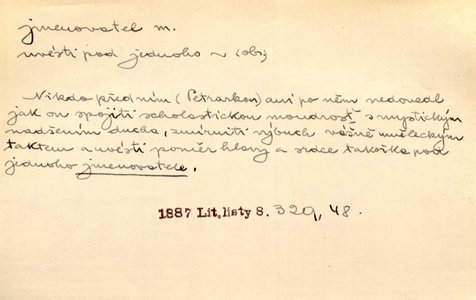 jmenovatel m.
uvésti pod jednoho ~ (obr.)
Nikdo před ním (Petrarkou) ani po něm nedovedl
jak on spojiti scholastickou moudrost s mystickým
nadšením ducha, smírniti výbuch vášně uměleckým
taktem a uvésti poměr hlavy a srdce takořka pod
jednoho jmenovatele.
1887 Lit. listy 8. 329, 48.